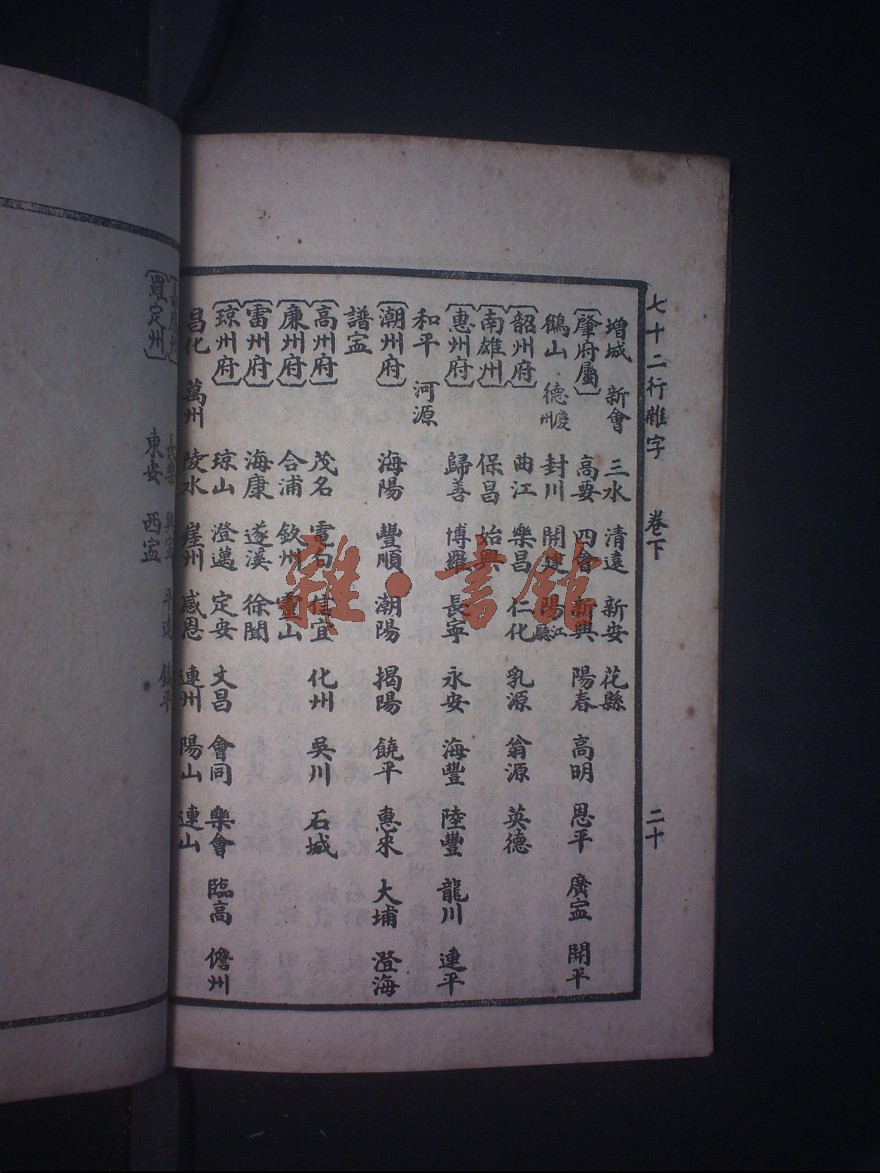 七十二行雜字　卷下　二十
增城　新會　三水　清遠　新安　花縣
〔肇府屬〕　高要　四會　新興　陽春　高明　恩平　廣寍　開平
鶴山　德慶州　封川　開建　陽江廳
〔韶州府〕　曲江　樂昌　仁化　乳源　翁源　英德
〔南雄州〕　保昌　始興
〔惠州府〕　歸善　博羅　長寧　永安　海豐　陸豐　龍川　連平
和平　河源
〔潮州府〕　海陽　豐順　潮陽　揭陽　饒平　惠來　大埔　澄海
譜寍
〔高州府〕　茂名　電白　信宜　化州　吳川　石城
〔廉州府〕　合浦　欽州　靈山
〔雷州府〕　海康　遂溪　徐聞
〔琼州府〕　琼山　澄邁　定安　文昌　會同　樂會　臨高　儋州
昌化　萬州　陵水　崖州　感恩　連州　陽山　連山
長樂　興寍　平遠　鎮平
〔羅定州〕　東安　西寍
雜·書館